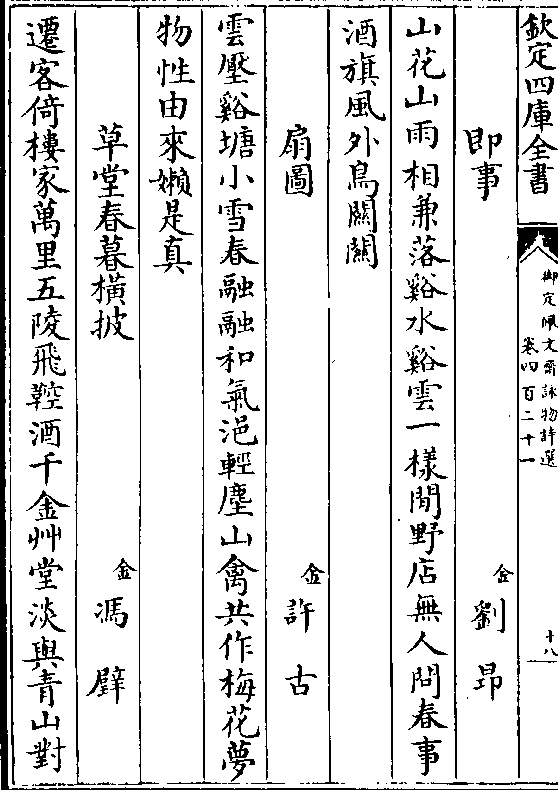 欽定四庫全書
御定佩文齋詠物詩選
卷四百二十一
十八
即事
金
劉昂
山花山雨相兼落谿水谿雲一樣閒野店無人問春事
酒旗風外鳥關關
扇圖
金
許古
雲壓谿塘小雪春融融和氣浥輕塵山禽共作梅花夢
物性由來嬾是真
草堂春暮橫披
金
馮璧
遷客倚樓家萬里五陵飛鞚酒千金艸堂淡與青山對